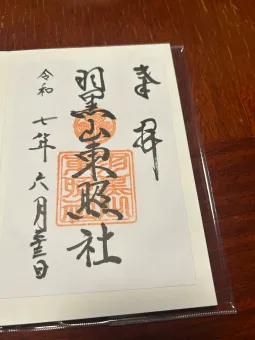 奉拝
羽黒山東照社
令和七年六月十三日